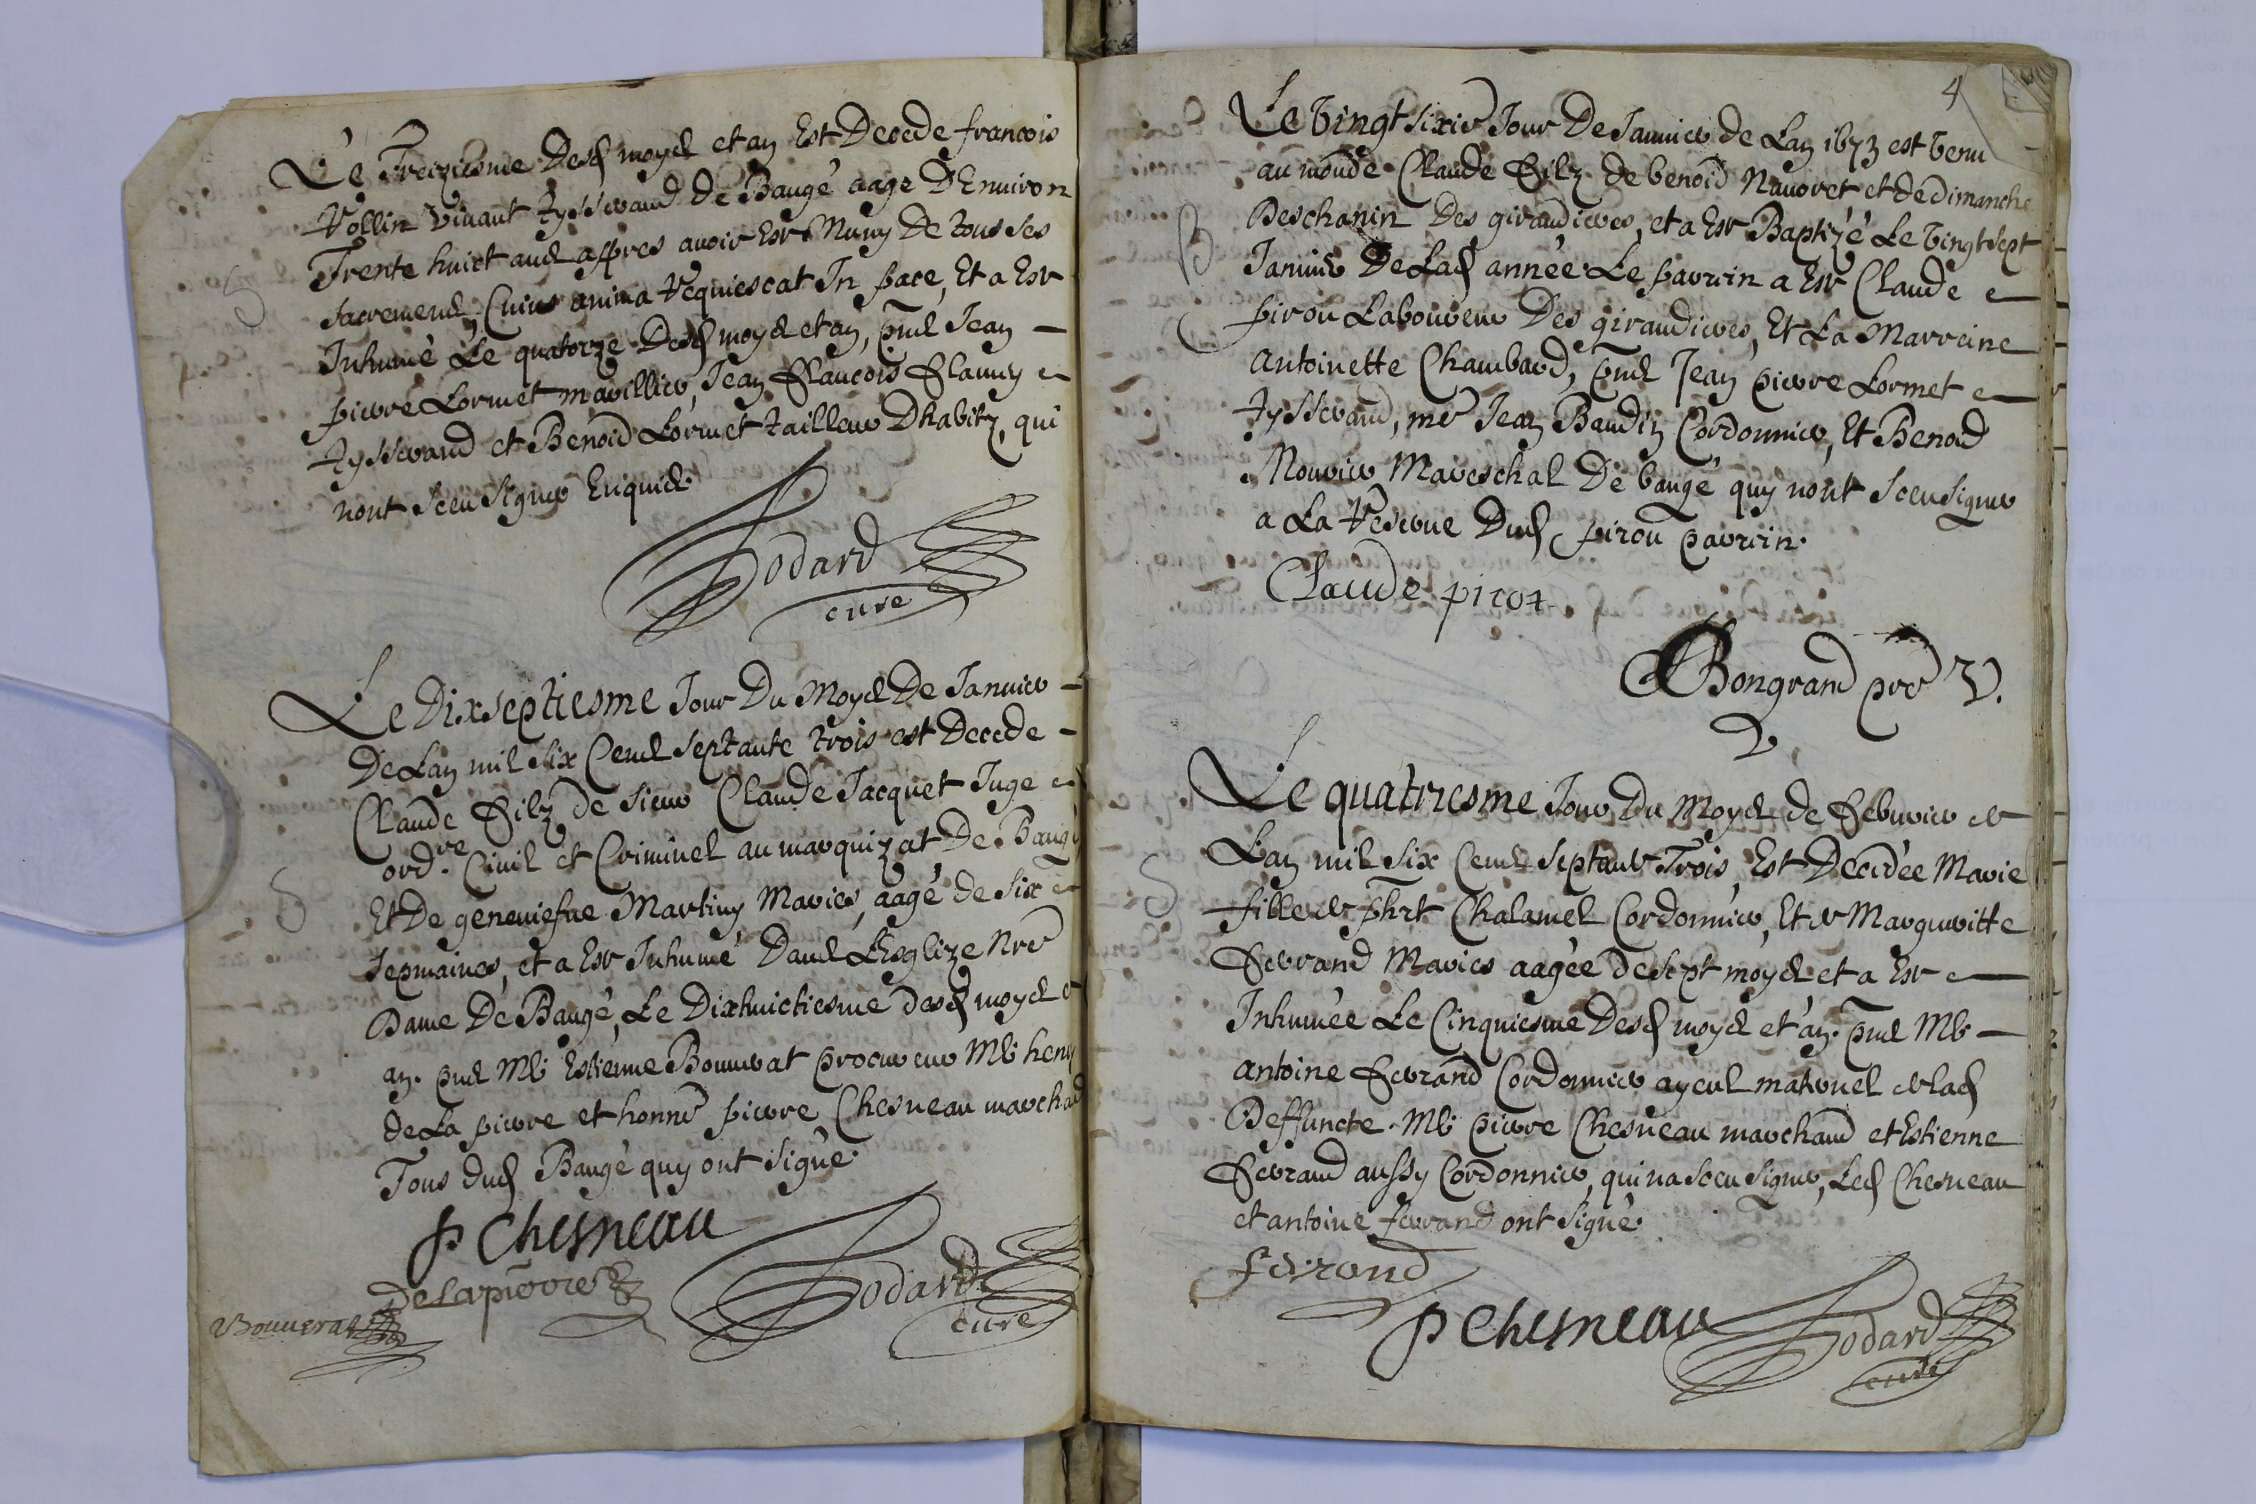 Le Treiziesme Desd moys et an Est Decede francois
Vollin vivant tysserand de Baugé aage D'Environ
Trente huict ans appres avoir Este Muny De tous ses
sacremens Cuius anima requiescat In pace, Et a Este
Inhumé Le quatorze Desd moys et an, pns Jean
pierre Lormet marillier, Jean Francois Flamy
tysserand et Benoid Lormet tailleur Dhabitz, qui
nont sceu signer Enquis.
Godard
cure
Le Dixseptiesme Jour Du Moys De Janvier
De Lan mil six Cens septante trois est Decede
Claude Filz de sieur Claude Jacquet Juge
ordre. Civil et Criminel au marquizat De Baugé
Et De geneviefve Martiny Maries, aagé de six
sepmaines, et a Este Inhumé Dans L'Esglize Nre
Dame De Baugé, Le Dixhuictiesme desd moys et
an. pns Me Estienne Bouverat procureur Me henry
de La pierre et honne pierre Chesneau marchad
Tous dud Baugé quy ont signé.
P Chesneau
Delapierre
Bouverat
Godard
cure
4
Le vingt sixie Jour De Janvier de Lan 1673 est venu
au monde Claude Filz de benoid Navoret et de dimanche
Deschanin Des giraudieres, et a Este Baptizé Le vingt sept
Janvier De Lad année Le parrin a Este Claude
pirou Laboureur Des giraudieres, Et La Marreine
Antoinette Chambard, pns Jean pierre Lormet
tysserand, me Jean Baudin Cordonnier, Et Benoid
Mourier Mareschal De baugé quy nont sceu signer
a La Reserve Dud pirou parrin.
Claude pirot
B
Bongrand pre V.
Le quatriesme Jour Du Moys de Febvrier de
Lan mil six Cens septante Trois, Est Decedée Marie
fille de phrt Chalamel Cordonnier, Et de Margueritte
Ferrand Maries aagée de sept moys et a Este
Inhumée Le Cinquiesme Desd moys et an. pns Me
antoine Ferrand Cordonnier ayeul maternel de lad
Deffuncte. Me pierre Chesneau marchand et Estienne
Ferrand aussy Cordonnier, qui na sceu signer, Led Chesneau
et antoine ferrand ont signé.
ferrand
P Chesneau
Godard
cure